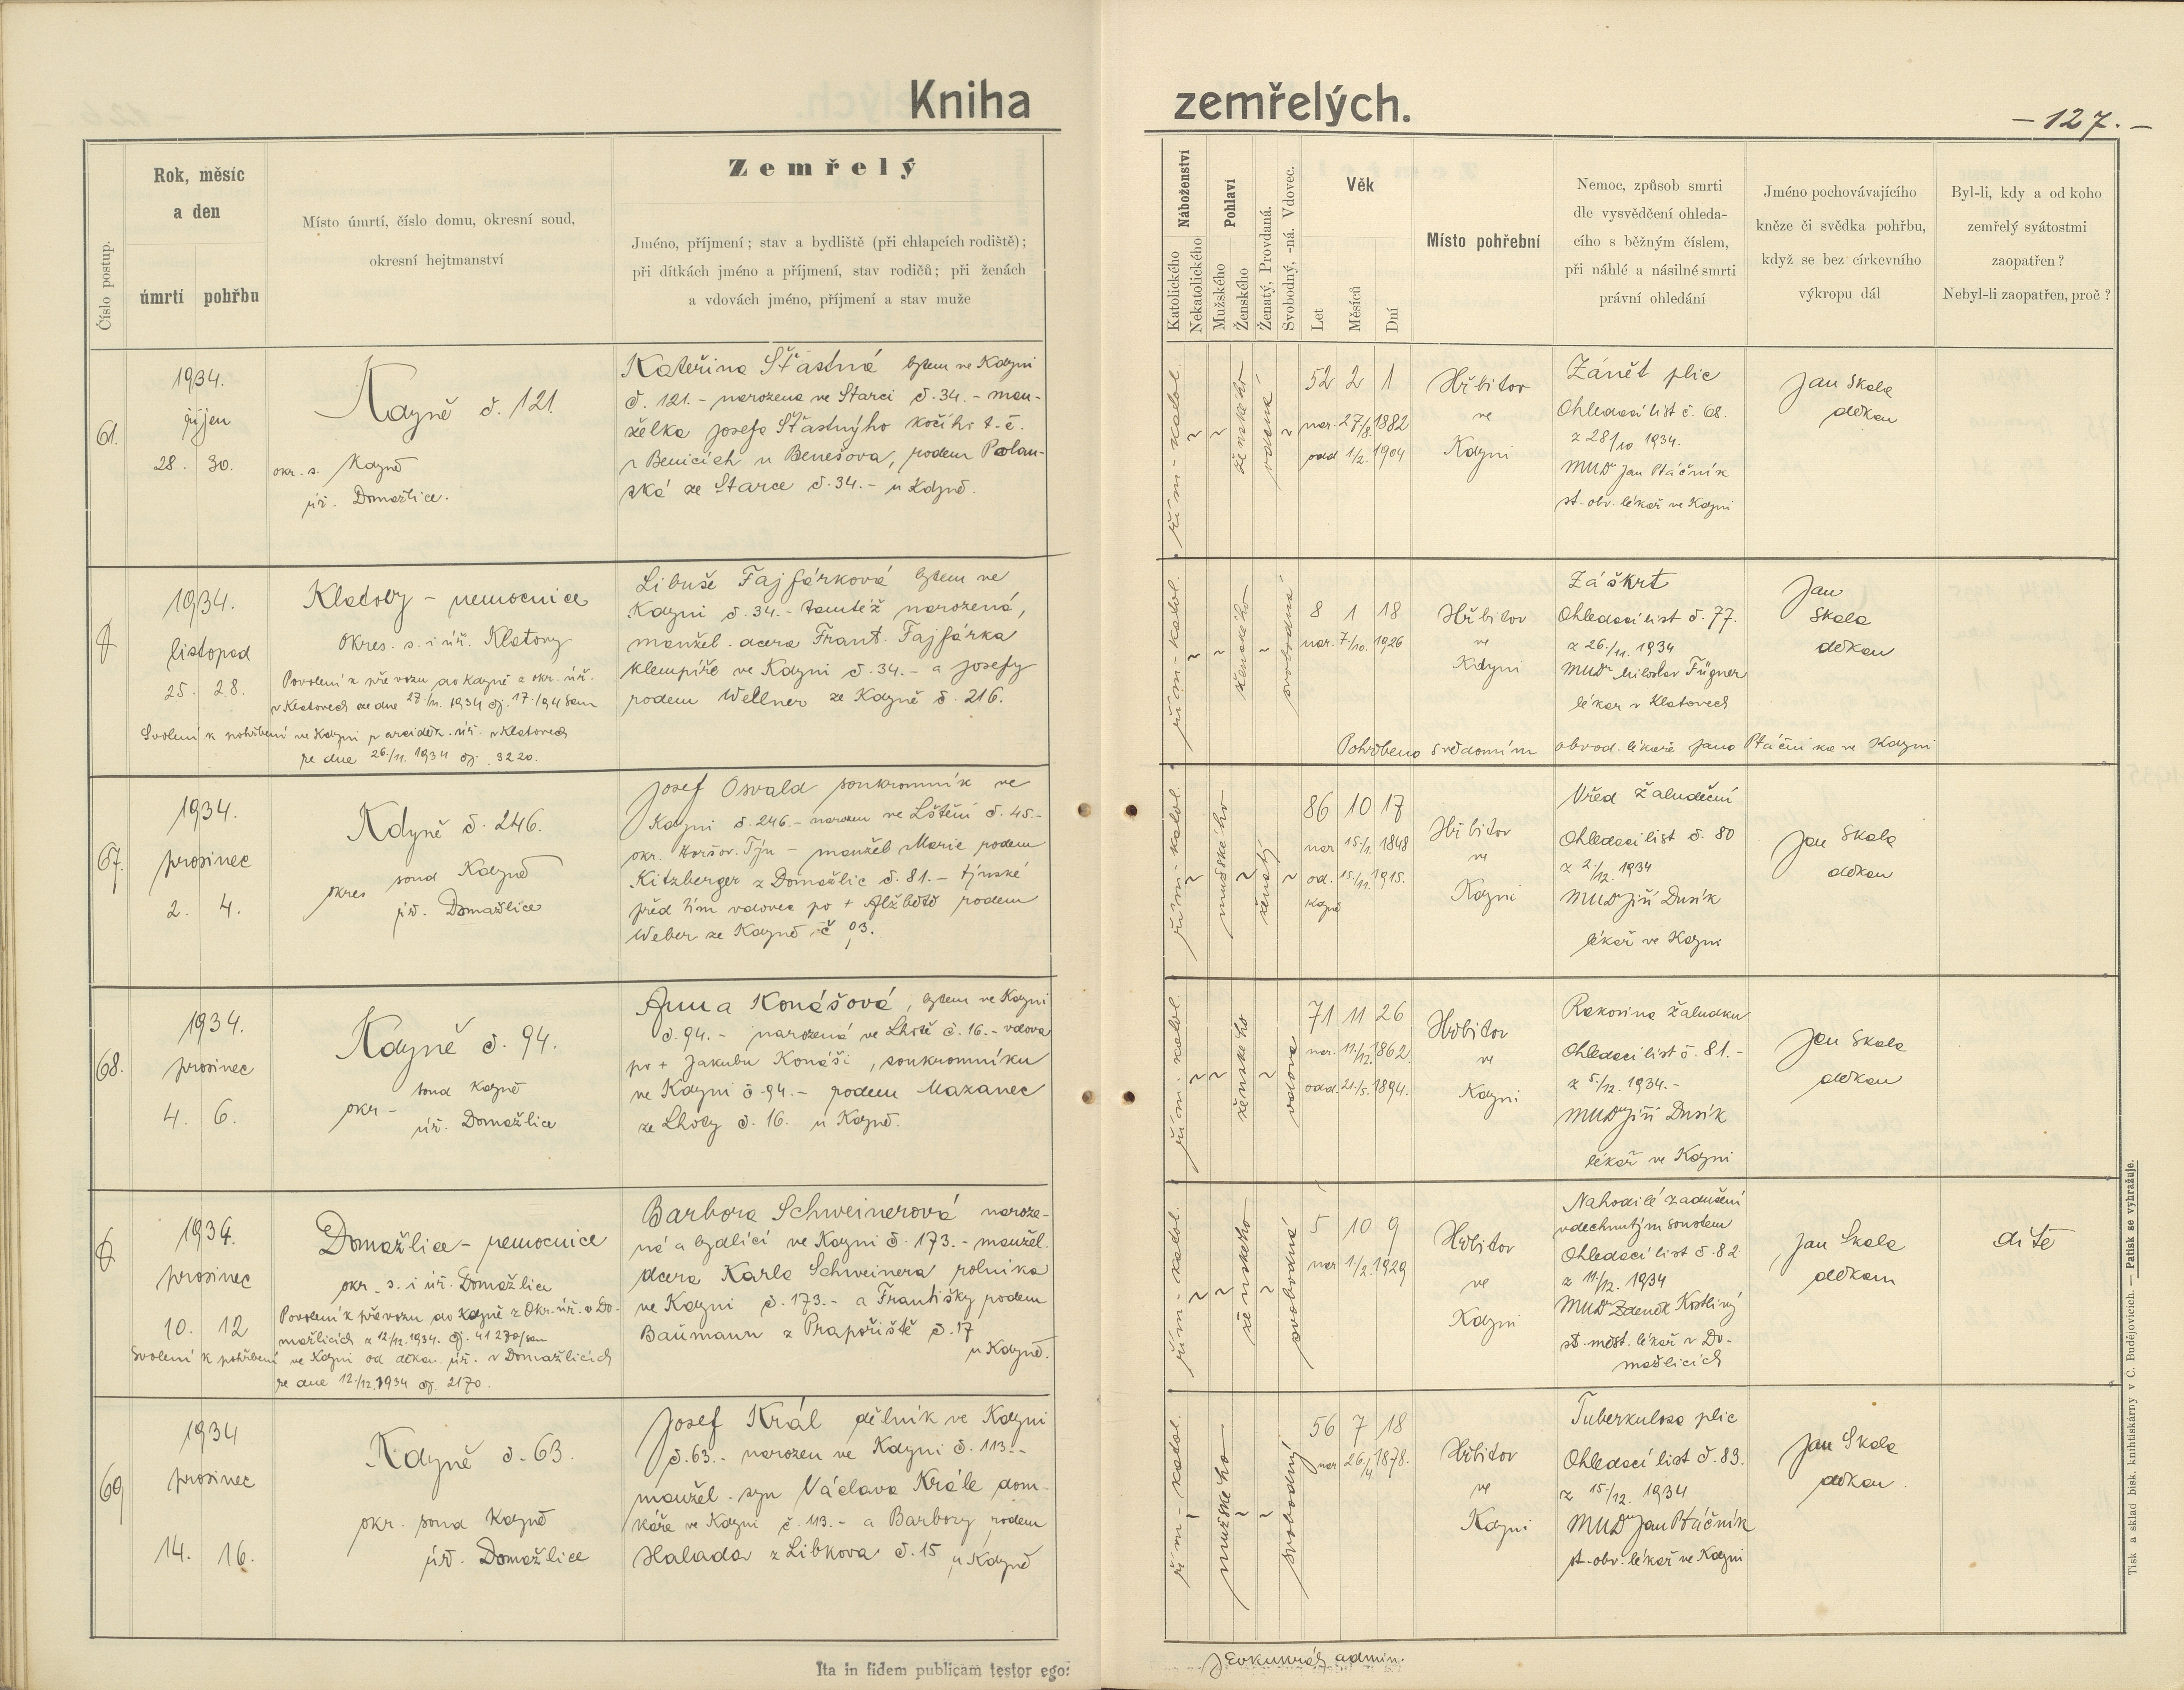 Kniha zemřelých.
- 127. -
Číslo postup.
Rok, měsíc
a den
úmrtí pohřbu
Místo úmrtí, číslo domu, okresní soud,
okresní hejtmanství
Zemřelý
Jméno, příjmení; stav a bydliště (při chlapcích rodiště);
při dítkách jméno a příjmení, stav rodičů; při ženách
a vdovách jméno, příjmení a stav muže
Náboženství
Katolického
Nekatolického
Pohlaví
Mužského
Ženského
Ženatý, Provdaná.
Svobodný, -ná. Vdovec.
Věk
Let
Měsíců
Dní
Místo pohřební
Nemoc, způsob smrti
dle vysvědčení ohleda-
cího s běžným číslem,
při náhlé a násilné smrti
právní ohledání
Jméno pochovávajícího
kněze či svědka pohřbu,
když se bez církevního
výkropu dál
Byl-li, kdy a od koho
zemřelý svátostmi
zaopatřen?
Nebyl-li zaopatřen, proč?
61.
1934.
říjen
28. 30.
Kdyně č. 121.
okr. s. Kdyně
úř. Domažlice.
Kateřina Šťastná bytem ve Kdyni
č. 121. - narozena ve Starci č. 34. - man-
želka Josefa Šťastnýho kočího t. č.
v Benicích u Benešova, rodem Polan-
ská ze Starce č. 34. - u Kdyně.
řím - katol.
ženského
vdaná
52 2 1
nar. 27/8. 1882
odd 1/2. 1904
Hřbitov
ve
Kdyni
Zánět plic
Ohledací list č. 68.
z 28/10. 1934.
MUDr Jan Ptáčník
st. obv. lékař ve Kdyni
Jan Skala
děkan
1934.
listopad
25. 28.
Klatovy - nemocnice
Okres. s. i úř. Klatovy
Povolení k převozu do Kdyně z okr. úř.
v Klatovech ze dne 27./11. 1934 čj. 17./94 San
Svolení k pohřbení ve Kdyni z arciděk. úř. v Klatovech
ze dne 26/11. 1934 čj. 3220.
Libuše Fajfárková bytem ve
Kdyni č. 34. - tamtéž narozená,
manžel. dcera Frant. Fajfárka
klempíře ve Kdyni č. 34. - a Josefy
rodem Wellner ze Kdyně č. 216.
řím - katol.
ženského
svobodná
8 1 18
nar. 7./10. 1926
Hřbitov
ve
Kdyni
Záškrt
Ohledací list č. 77.
z 26./11. 1934
MUDr Miloslav Fügner
lékař v Klatovech
Jan
Skala
děkan
Pohřbena s vědomím obvod. lékaře Jana Ptáčníka ve Kdyni
67.
1934.
prosinec
2. 4.
Kdyně č. 246.
okres soud Kdyně
úř. Domažlice
Josef Osvald soukromník ve
Kdyni č. 246. - narozen ve Lštění č. 45. -
okr. Horšov. Týn - manžel Marie rodem
Kitzberger z Domažlic č. 81. - týnské
před tím vdovec po + Alžbětě rodem
Weber ze Kdyně č 93.
řím - katol.
mužského
ženatý
86 10 17
nar 15./1. 1848
od. 15./11. 1915.
Kdyně
Hřbitov
ve
Kdyni
Vřed žaludeční
Ohledací list č. 80
z 2./12. 1934
MUDr Jiří Dusík
lékař ve Kdyni
Jan Skala
děkan
68.
1934.
prosinec
4. 6.
Kdyně č. 94.
okr - soud Kdyně
úř. Domažlice
Anna Konášová, bytem ve Kdyni
č. 94. - narozená ve Lhotě č. 16. - vdova
po + Jakubu Konáši, soukromníku
ve Kdyni č. 94. - rodem Mazanec
ze Lhoty č. 16. u Kdyně.
řím - katol.
ženského
vdova
71 11 26
nar. 11./12. 1862.
odd. 21./5. 1894.
Hřbitov
ve
Kdyni
Rakovina žaludku
Ohledací list č. 81. -
z 5./12. 1934. -
MUDr Jiří Dusík
lékař ve Kdyni
Jan Skala
děkan
1934.
prosinec
10. 12
Domažlice - nemocnice
okr. s. i úř. Domažlice
Povolení k převozu do Kdyně z Okr. úř. v Do-
mažlicích z 12/12. 1934. čj. 41270/san
Svolení k pohřbení ve Kdyni od děkan. úř. v Domažlicích
ze dne 12./12. 1934 čj. 2170.
Barbora Schweinerová naroze-
ná a bydlící ve Kdyni č. 173. - manžel.
dcera Karla Schweinera rolníka
ve Kdyni č. 173. - a Františky rodem
Baümann z Prapořiště č. 17
u Kdyně.
řím - katol.
ženského
svobodná
5 10 9
nar 1/2. 1929
Hřbitov
ve
Kdyni
Nahodilé zadušení
vdechnutým soustem
Ohledací list č. 82
z 11./12. 1934
MUDr Zdeněk Kostlivý
st. měst. lékař v Do-
mažlicích
Jan Skala
děkan
dítě
69
1934
prosinec
14. 16.
Kdyně č. 63.
okr. soud Kdyně
úř. Domažlice
Josef Král dělník ve Kdyni
č. 63. - narozen ve Kdyni č. 113. -
manžel. syn Václava Krále dom-
káře ve Kdyni č. 113. - a Barbory rodem
Halada z Libkova č. 15 u Kdyně
řím - katol.
mužského
svobodný
56 7 18
nar 26./4. 1878.
Hřbitov
ve
Kdyni
Tuberkulosa plic
Ohledací list č. 83.
z 15./12. 1934
MUDr Jan Ptáčník
st. obv. lékař ve Kdyni
Jan Skala
děkan
Ita in fidem publicam testor ego:
admin.
Tisk a sklad bisk. knihtiskárny v Č. Budějovicích. — Patisk se vyhražuje.